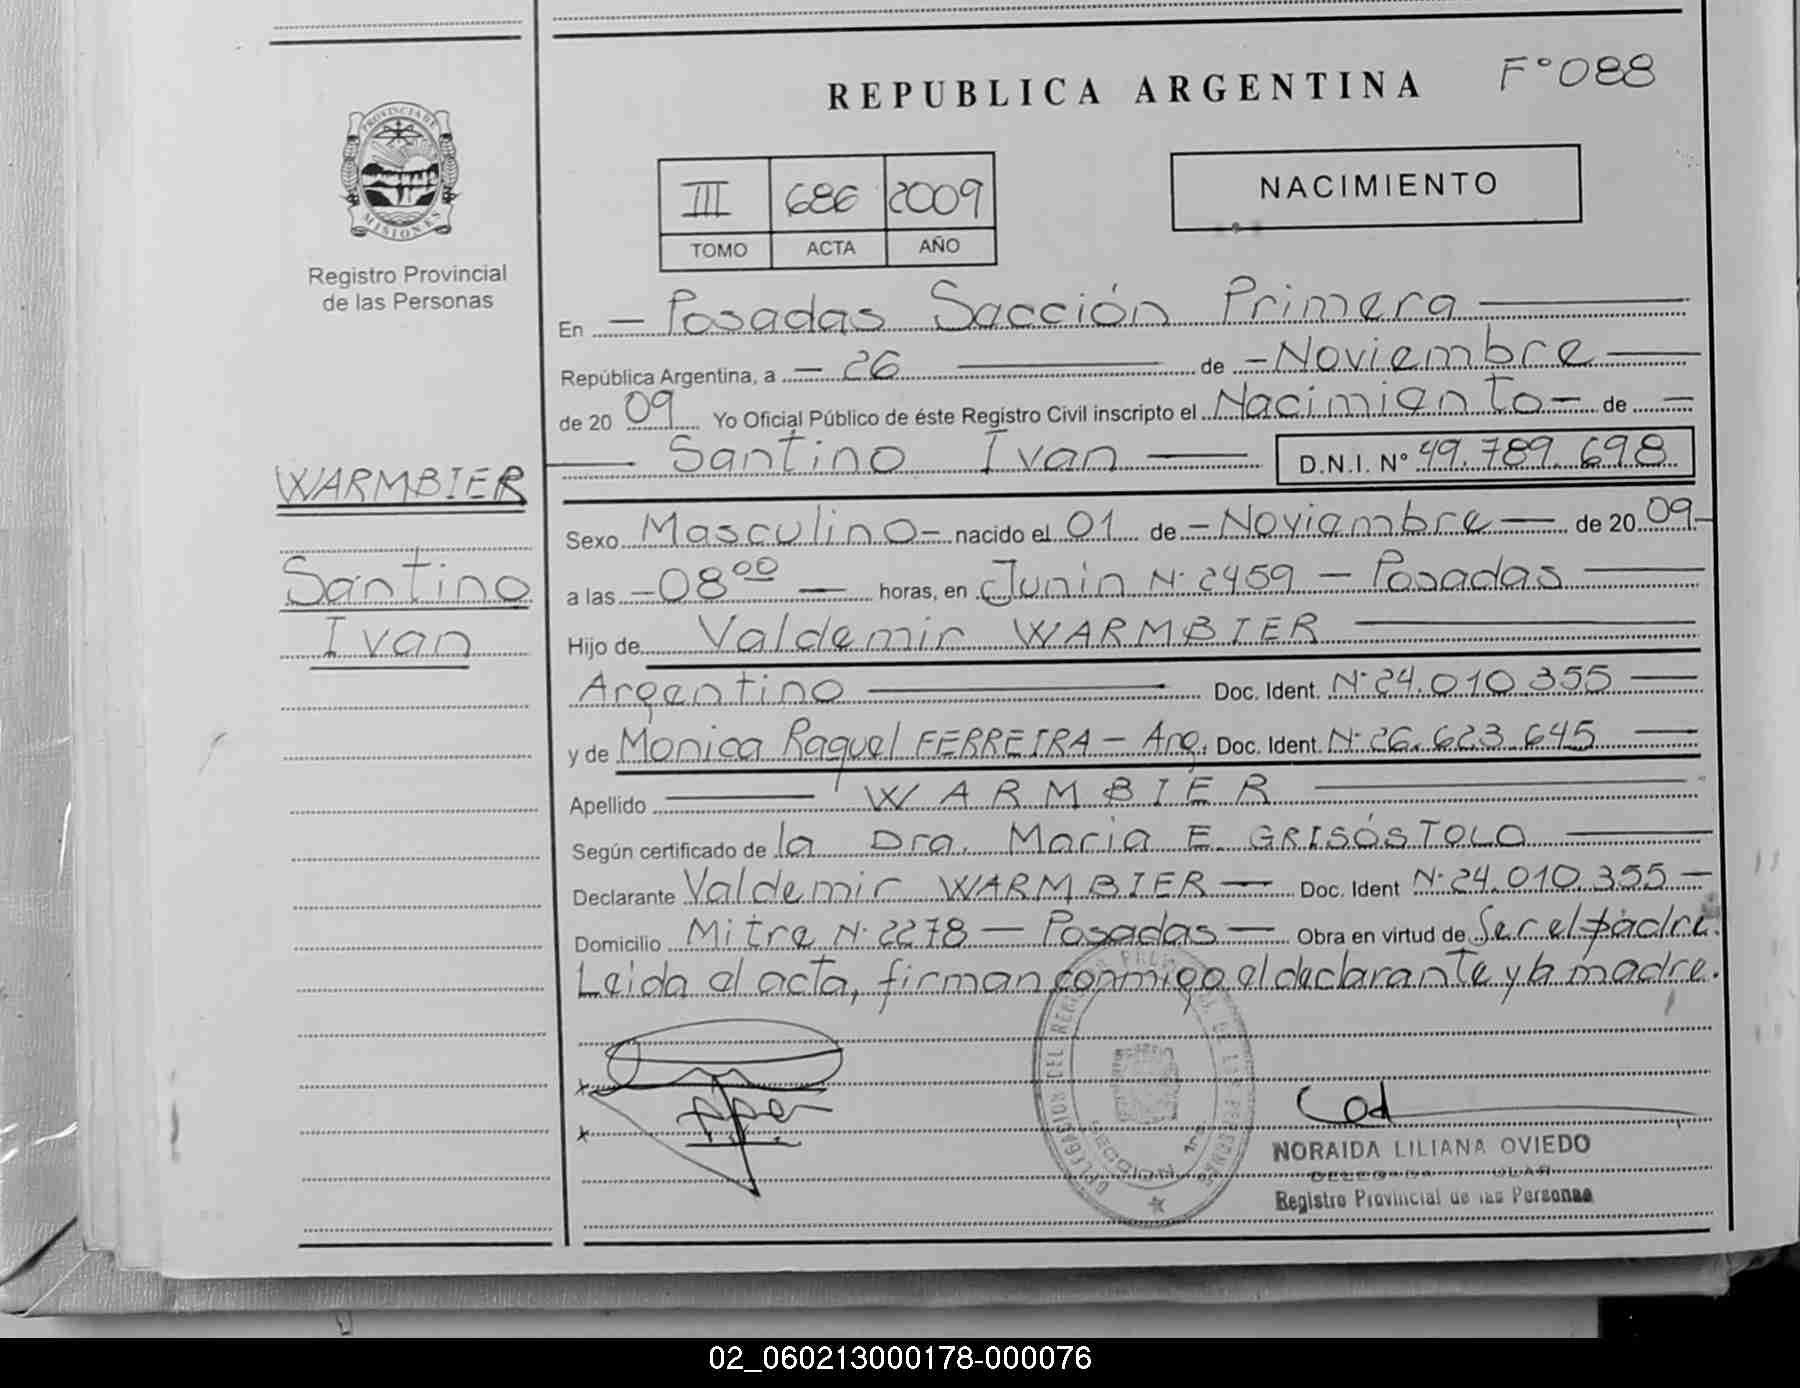 REPUBLICA ARGENTINA F° 088
PROVINCIA DE MISIONES
Registro Provincial
de las Personas
III 686 2009
TOMO ACTA AÑO
NACIMIENTO
En — Posadas Sección Primera —
República Argentina, a — 26 — de — Noviembre —
de 20 09 Yo Oficial Público de éste Registro Civil inscripto el Nacimiento — de —
— Santino Ivan — D.N.I. N° 49.789.698
WARMBIER
Santino
Ivan
Sexo Masculino — nacido el 01 de — Noviembre — de 20 09 —
a las — 08 00 — horas, en Junin N° 2459 — Posadas —
Hijo de Valdemir WARMBIER —
Argentino — Doc. Ident. N° 24.010.355 —
y de Monica Raquel FERREIRA — Arg. Doc. Ident. N° 26.623.645 —
Apellido — WARMBIER —
Según certificado de la Dra. Maria E. GRISÓSTOLO —
Declarante Valdemir WARMBIER — Doc. Ident N° 24.010.355 —
Domicilio Mitre N° 2278 — Posadas — Obra en virtud de Ser el padre.
Leida el acta, firman conmigo el declarante y la madre.
x
x
DELEGACION DEL REGISTRO PROVINCIAL DE LAS PERSONAS
SECCION 1ra
NORAIDA LILIANA OVIEDO
DELEGADA TITULAR
Registro Provincial de las Personas
02_060213000178-000076